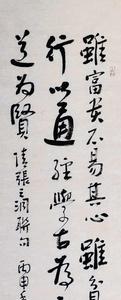 雖富貴不易其心雖貧
行以通經學古為
道為賢 陸張之洞聯句 丙申